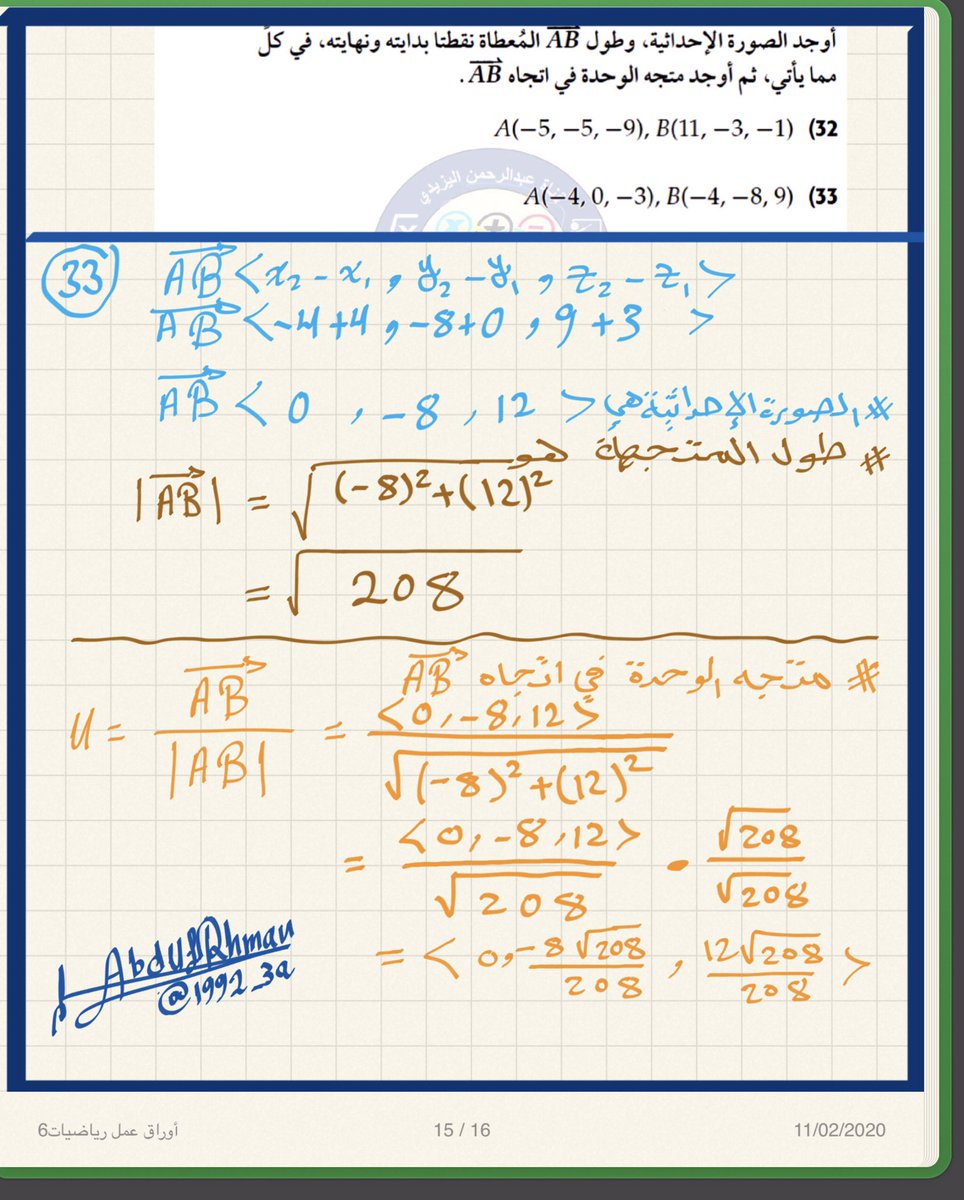 أوجد الصورة الإحداثية، وطول AB المُعطاة نقطتا بدايته ونهايته، في كلّ
مما يأتي، ثم أوجد متجه الوحدة في اتجاه AB.
32) A(−5, −5, −9), B(11, −3, −1)
عبدالرحمن اليزيدي
33) A(−4, 0, −3), B(−4, −8, 9)
33 AB <x₂ - x₁, y₂ - y₁, z₂ - z₁>
AB <-4+4, -8+0, 9+3 >
# الصورة الإحداثية هي AB < 0 , -8 , 12 >
# طول المتجهة هو
|AB| = √(-8)²+(12)²
= √208
# متجه الوحدة في اتجاه AB
U = AB / |AB| = <0, -8, 12> / √(-8)²+(12)²
= <0, -8, 12> / √208 • √208 / √208
= < 0, -8√208 / 208 , 12√208 / 208 >
AbdulRhman
@1992_3a
أوراق عمل رياضيات6
15 / 16
11/02/2020